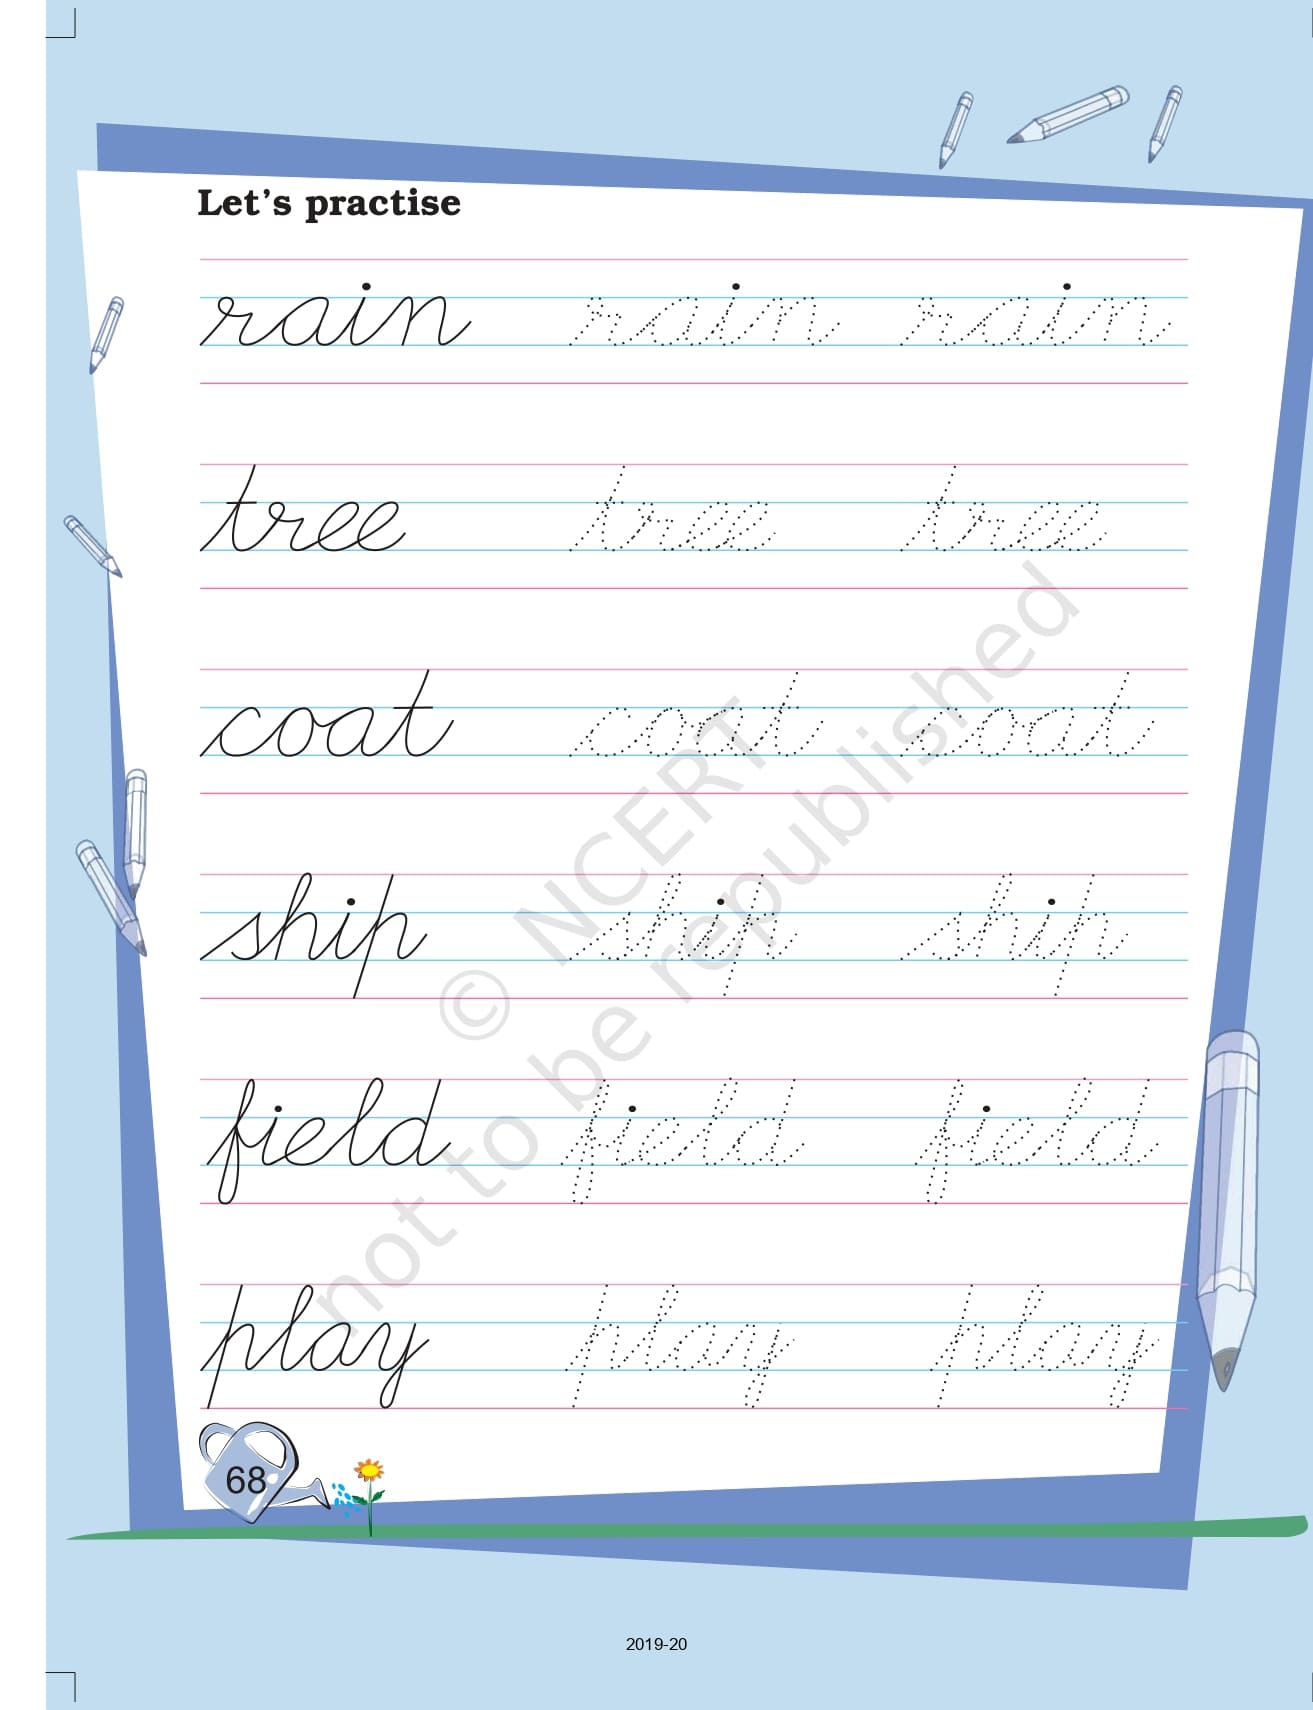 Let's practise
rain rain rain
tree tree tree
coat coat coat
ship ship ship
field field field
play play play
© NCERT
not to be republished
68
2019-20